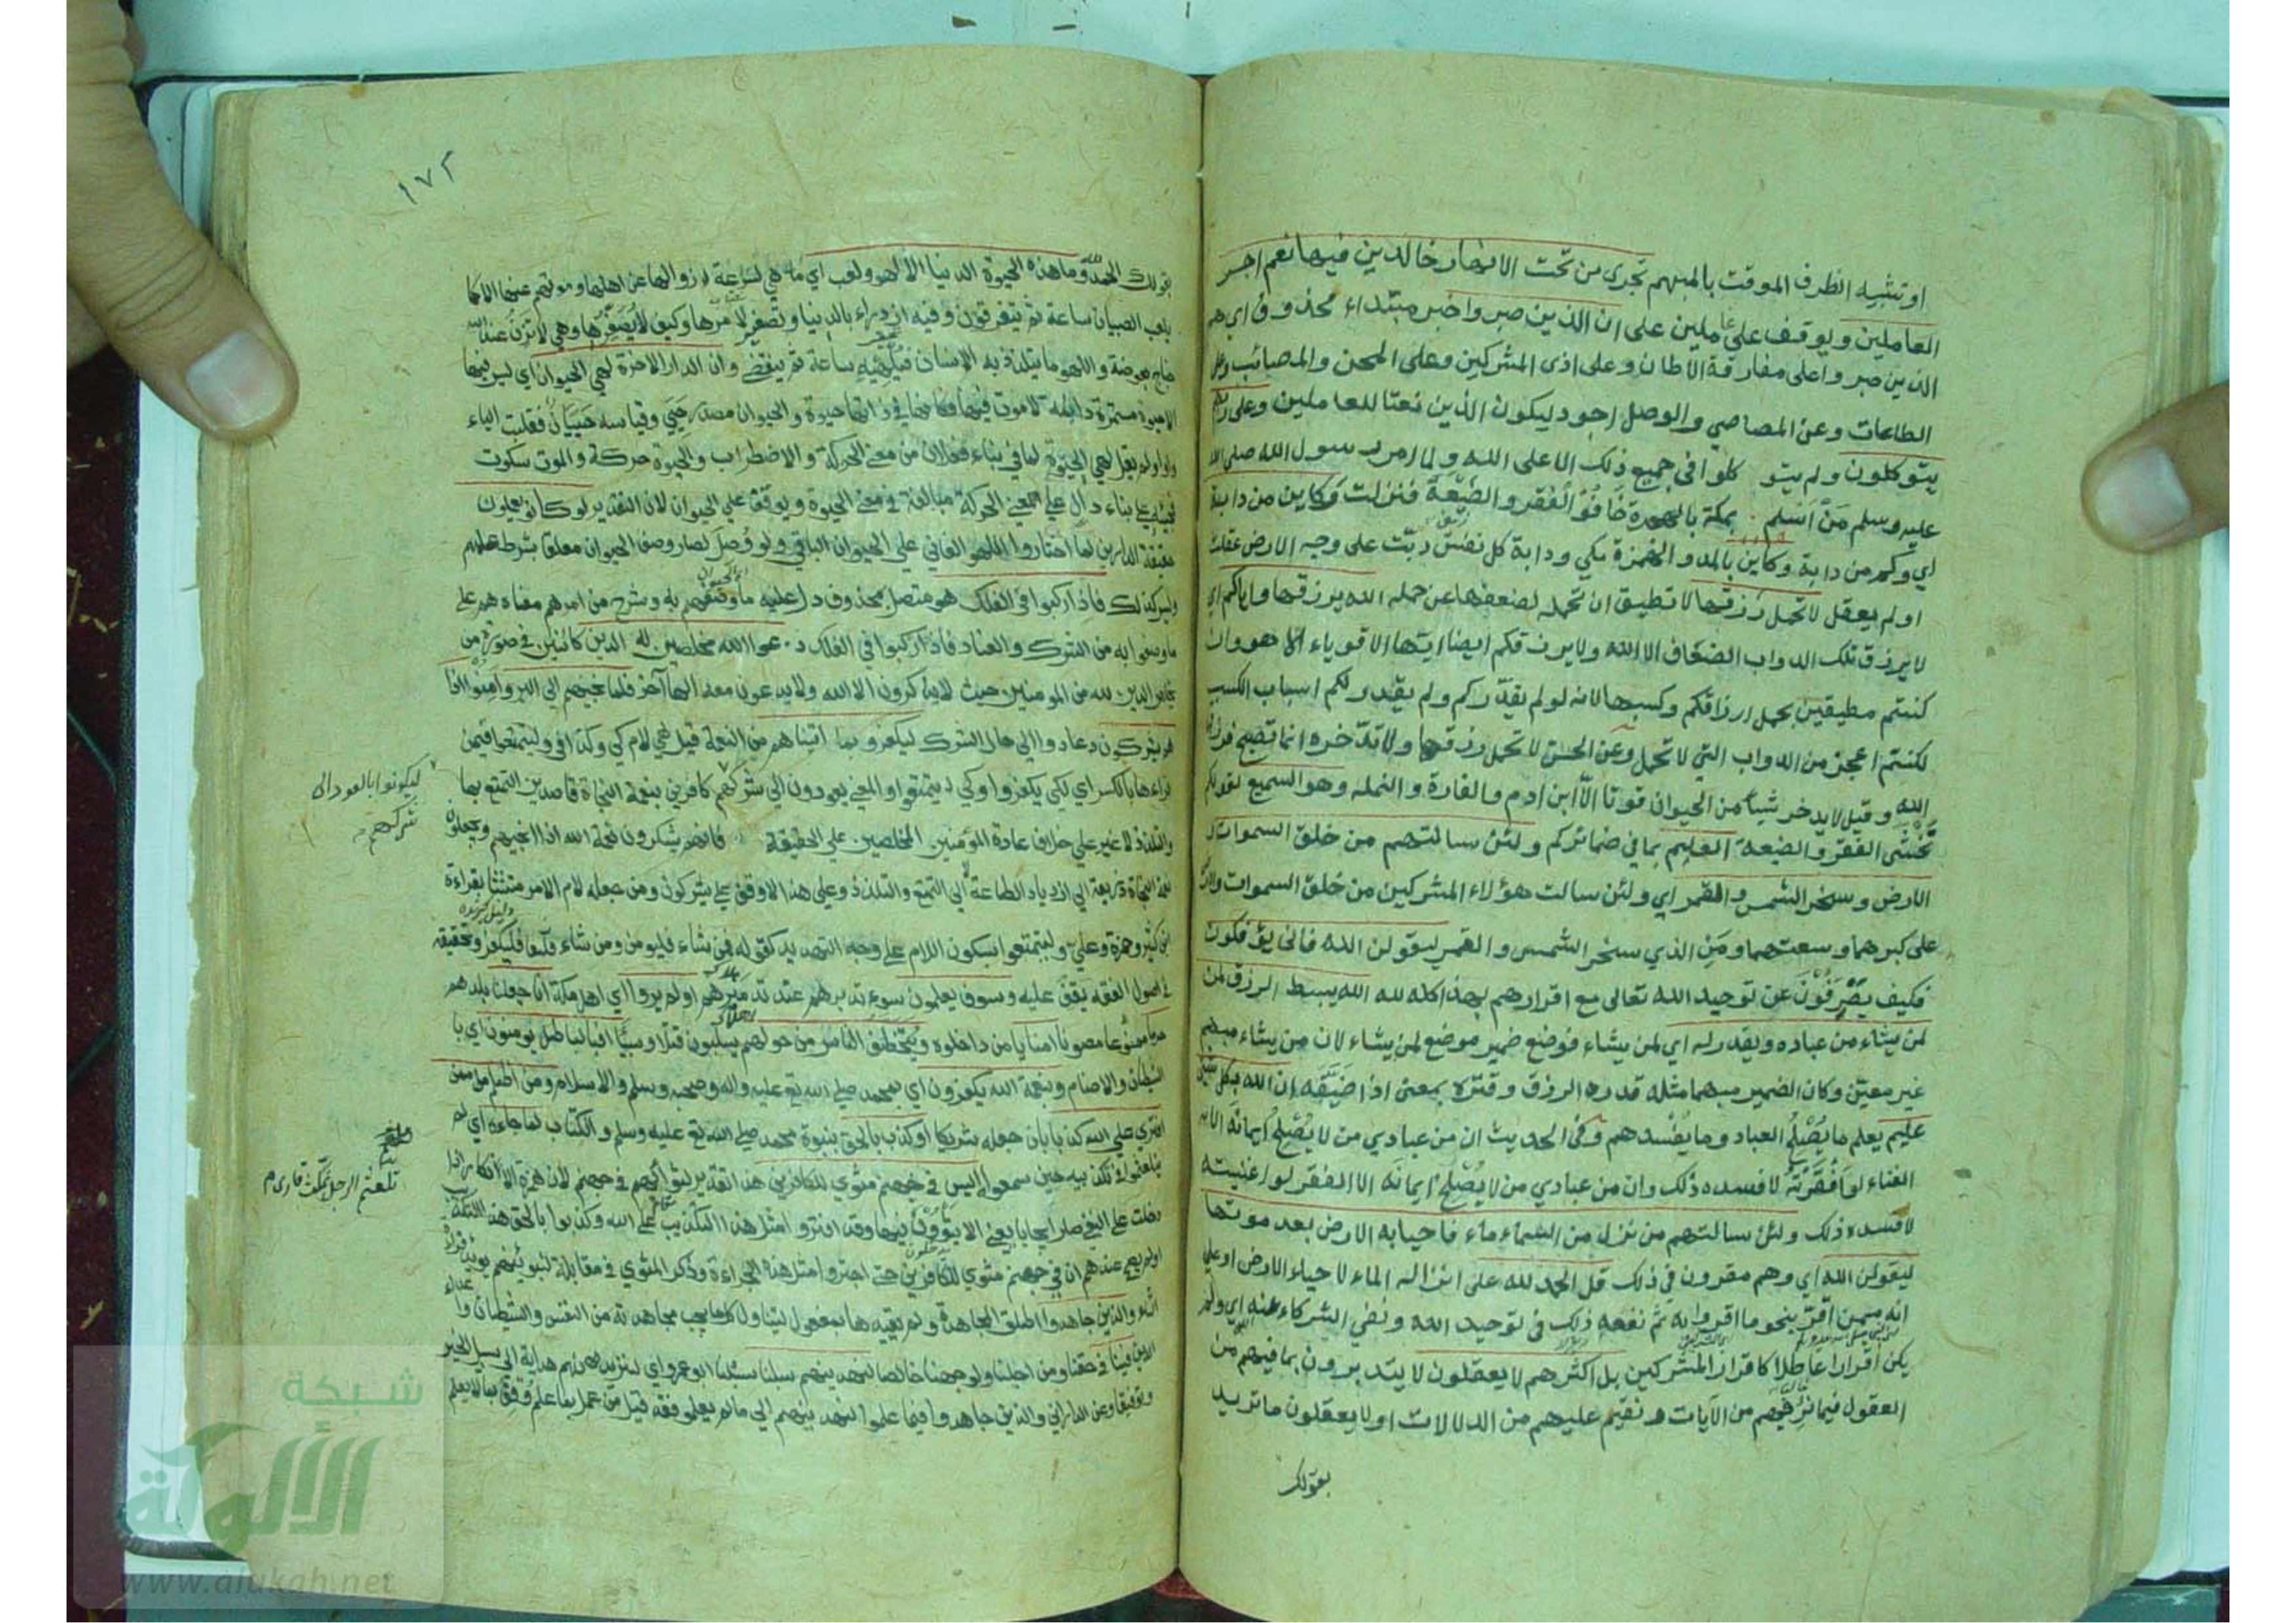 او تشبيه الظرف الموقت بالمبهم تجرى من تحت الانهار خالدين فيها نعم اجر
العاملين ويوقف على عاملين على ان الذين صبروا خبر مبتداء محذوف اي هم
الذين صبروا على مفارقة الاطان وعلى اذى المشركين وعلى المحن والمصائب وعلى
الطاعات وعن المعاصي والوصل اجود ليكون الذين نعتا للعاملين وعلى ربهم
يتوكلون ولم يتو كلوا في جميع ذلك الا على الله ولما امر رسول الله صلى الله
عليه وسلم من اسلم بمكة بالهجرة خافوا الفقر والضيعة فنزلت وكاين من دابة
اي وكم من دابة وكاين بالمد والهمزة مكي ودابة كل نفس دبت على وجه الارض عقلت
او لم يعقل لا تحمل رزقها لا تطيق ان تحمله لضعفها عن حمله الله يرزقها واياكم اي
لا يرزق تلك الدواب الضعاف الا الله ولا يرزقكم ايضا ايتها الاقوياء الا هو وان
كنتم مطيقين بحمل ارزاقكم وكسبها لانه لو لم يقدركم ولم يقدر لكم اسباب الكسب
لكنتم اعجز من الدواب التي لا تحمل وعن الحسن لا تحمل رزقها ولا تدخره انما تصبح فيرزقها
الله وقيل لا يدخر شيأ من الحيوان قوتا الا ابن ادم والفارة والنملة وهو السميع لقولكم
نخشى الفقر والضيعة العليم بما في ضمائركم ولئن سالتهم من خلق السموات و
الارض وسخر الشمس والقمر اي ولئن سالت هؤلاء المشركين من خلق السموات والارض
على كبرهما وسعتهما ومن الذي سخر الشمس والقمر ليقولن الله فانى يؤفكون
فكيف يصرفون عن توحيد الله تعالى مع اقرارهم بهذا كله لله الله يبسط الرزق لمن
لمن يشاء من عباده ويقدر له اي لمن يشاء فوضع ضمير موضع لمن يشاء لان من يشاء مبهم
غير معين وكان الضمير مبهما مثله قدره الرزق وقتره بمعنى اذا ضيقه ان الله بكل شئ
عليم يعلم ما يصلح العباد وما يفسدهم وفى الحديث ان من عبادي من لا يصلح ايمانه الا
الغناء لو افقرته لافسده ذلك وان من عبادي من لا يصلح ايمانه الا الفقر لو اغنيته
لافسده ذلك ولئن سالتهم من نزل من السماء ماء فاحيا به الارض بعد موتها
ليقولن الله اي وهم مقرون في ذلك قل الحمد لله على انزاله الماء لاحياء الارض او على
انه ممن اقر بنحو ما اقروا به ثم نفعه ذلك في توحيد الله ونفي الشركاء عنه اي ولم
يكن اقرارا عاطلا كاقرار المشركين بل اكثرهم لا يعقلون لا يتدبرون بما فيهم من
العقول فيما نريهم من الآيات ونقيم عليهم من الدلالات اولا يعقلون ما تريد
بقولك
١٧٢
بقولك الحمد لله وما هذه الحيوة الدنيا الا لهو ولعب اي ما هي لسرعة زوالها عن اهلها وموتهم عنها الا كما
يلعب الصبيان ساعة ثم يتفرقون وفيه ازدراء بالدنيا وتصغير لامرها وكيف لا يصغرها وهي لا تزن عند الله
جناح بعوضة واللهو ما يتلذذ به الانسان فيلهيه ساعة ثم ينقضي وان الدار الاخرة لهي الحيوان اي ليس فيها
الا حيوة مستمرة دايمة لا موت فيها فكانها في ذاتها حيوة والحيوان مصدر حيي وقياسه حييان فقلبت الياء
واوا ولم يقل لهي الحيوة لما في بناء فعلان من معنى الحركة والاضطراب والحيوة حركة والموت سكون
فمجيئه على بناء دال على معنى الحركة مبالغة في معنى الحيوة ويوقف على الحيوان لان التقدير لو كانوا يعلمون
حقيقة الدارين لما اختاروا اللهو الفاني على الحيوان الباقي ولو وصل لصار وصف الحيوان معلقا بشرط علمهم
وليس كذلك فاذا ركبوا في الفلك هو متصل بمحذوف دل عليه ما وصفهم به وشرح من امرهم معناه هم على
ما وصفوا به من الشرك والعناد فاذا ركبوا في الفلك دعوا الله مخلصين له الدين كائنين في صورة من
يخلص الدين لله من المومنين حيث لا يذكرون الا الله ولا يدعون معه الها آخر فلما نجيهم الى البر وامنوا اذا
هم يشركون عادوا الى حال الشرك ليكفروا بما اتيناهم من النعمة قيل هي لام كي وكذا في وليتمتعوا فيمن
قراءها بالكسر اي لكي يكفروا وكي يتمتعوا والمعنى يعودون الى شركهم كافرين بنعمة النجاة قاصدين التمتع بها
والتلذذ لا غير على خلاف عادة المؤمنين المخلصين على الحقيقة فانهم يشكرون نعمة الله اذا انجيهم ويجعلون
نعمة النجاة ذريعة الى ازدياد الطاعة لا الى التمتع والتلذذ وعلى هذا لا وقف على يشركون ومن جعله لام الامر متشبثا بقراءة
ابن كثير وحمزة وعلي وليتمتعوا بسكون اللام على وجه التهديد كقوله فمن شاء فليومن ومن شاء فليكفر وتحقيقه
في اصول الفقه يقف عليه وسوف يعلمون سوء تدبيرهم عند تدميرهم اولم يروا اي اهل مكة انا جعلنا بلدهم
حرما ممنوعا مصونا امنا يامن داخلوه ويتخطف الناس من حولهم يسلبون قتلا وسبيا افبالباطل يومنون اي با
الشيطان والاصنام وبنعمة الله يكفرون اي بمحمد صلى الله تع عليه واله وصحبه وسلم والاسلام ومن اظلم ممن
افترى على الله كذبا بان جعل له شريكا او كذب بالحق بنبوة محمد صلى الله تع عليه وسلم والكتاب لما جاءه اي لم
يتلعثموا في تكذيبه حين سمعوا اليس في جهنم مثوى للكافرين هذا تقرير لثوائهم في جهنم لان همزة الانكار اذا
دخلت على النفي صار ايجابا يعني الا يثوون فيها وقد افتروا مثل هذا التكذيب على الله وكذبوا بالحق هذا التكذيب
اولم يصح عندهم ان في جهنم مثوى للكافرين حتى اجترؤا مثل هذه الجراءة وذكر المثوى في مقابلة لنبوئنهم يؤيد قراءة
الثاء والذين جاهدوا اطلق المجاهدة ولم يقيدها بمفعول ليتناول كل ما يجب مجاهدته من النفس والشيطان وا
الدين فينا في حقنا ومن اجلنا ولوجهنا خالصا لنهدينهم سبلنا سبلنا ابو عمرو اي لنزيدنهم هداية الى سبيل الخير
وتوفيقا وعن الداراني والذين جاهدوا فيما علموا لنهدينهم الى ما لم يعلموا فقد قيل من عمل بما علم وفق لما لا يعلم
ليكونوا بالعود الى
شركهم
تلعثم الرجل تمكث قارى م
شبكة
الألوكة
www.alukah.net